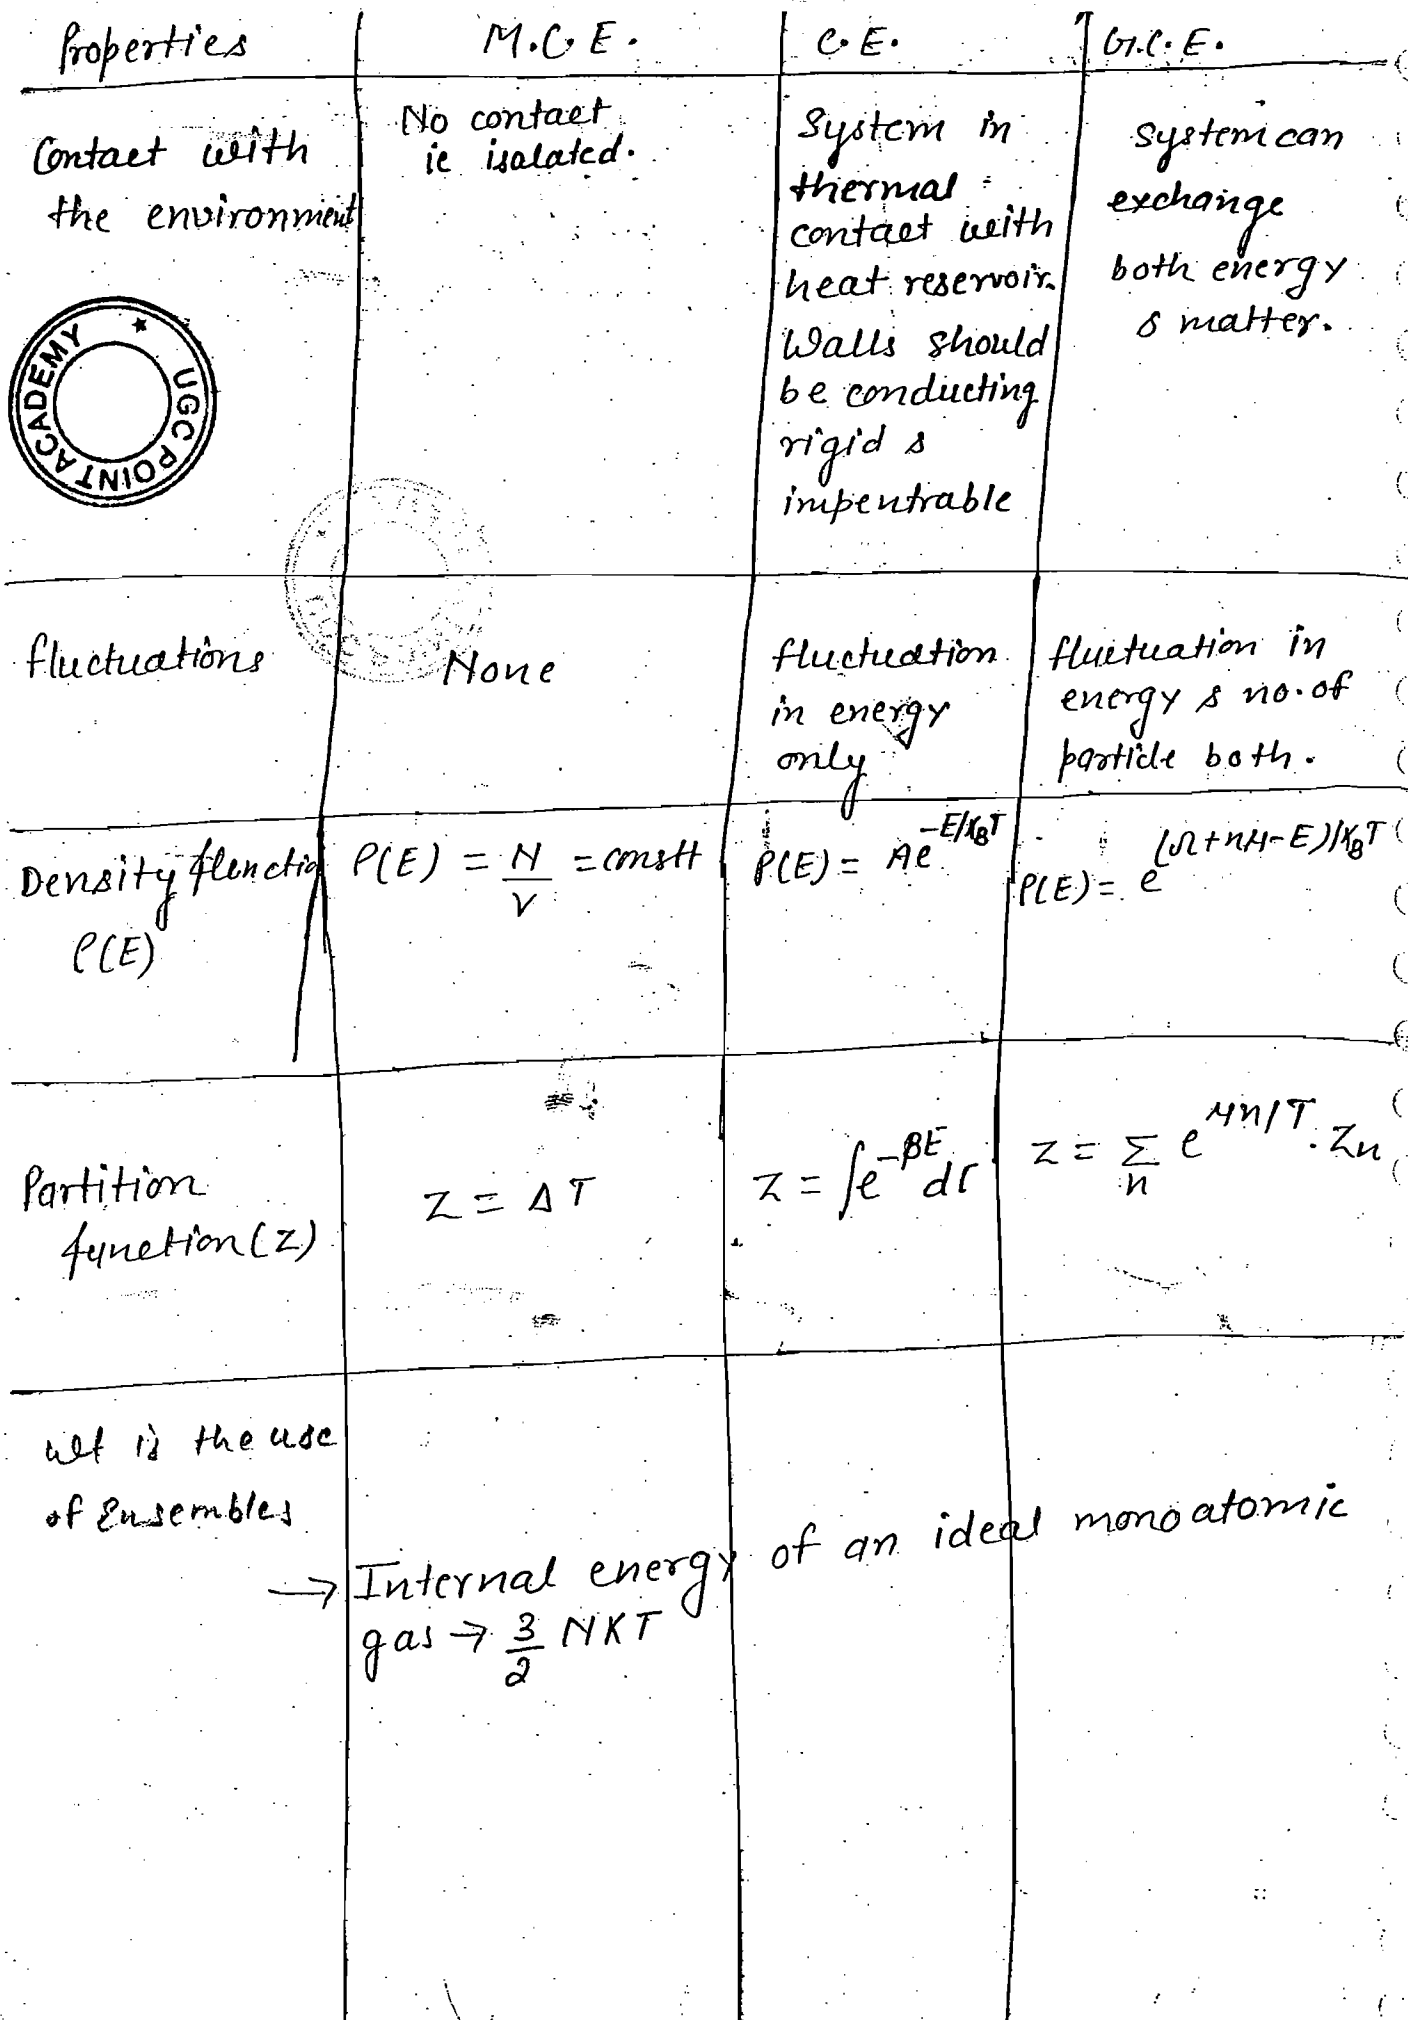 Properties
M.C.E.
C.E.
G.C.E.
Contact with
the environment
No contact
ie isolated.
System in
thermal
contact with
heat reservoir.
Walls should
be conducting
rigid &
impentrable
system can
exchange
both energy
& matter.
UGC POINT ACADEMY
fluctuations
None
fluctuation
in energy
only
fluctuation in
energy & no. of
particle both.
Density function
ρ(E)
ρ(E) = N/V = constt
ρ(E) = Ae^{-E/K_BT}
ρ(E) = e^{(Ω+nμ-E)/K_BT}
Partition
function (Z)
Z = ΔΓ
Z = ∫e^{-βE} dΓ
Z = Σ_n e^{μn/T} . Z_n
wt is the use
of Ensembles
→ Internal energy of an ideal monoatomic
gas → 3/2 NKT